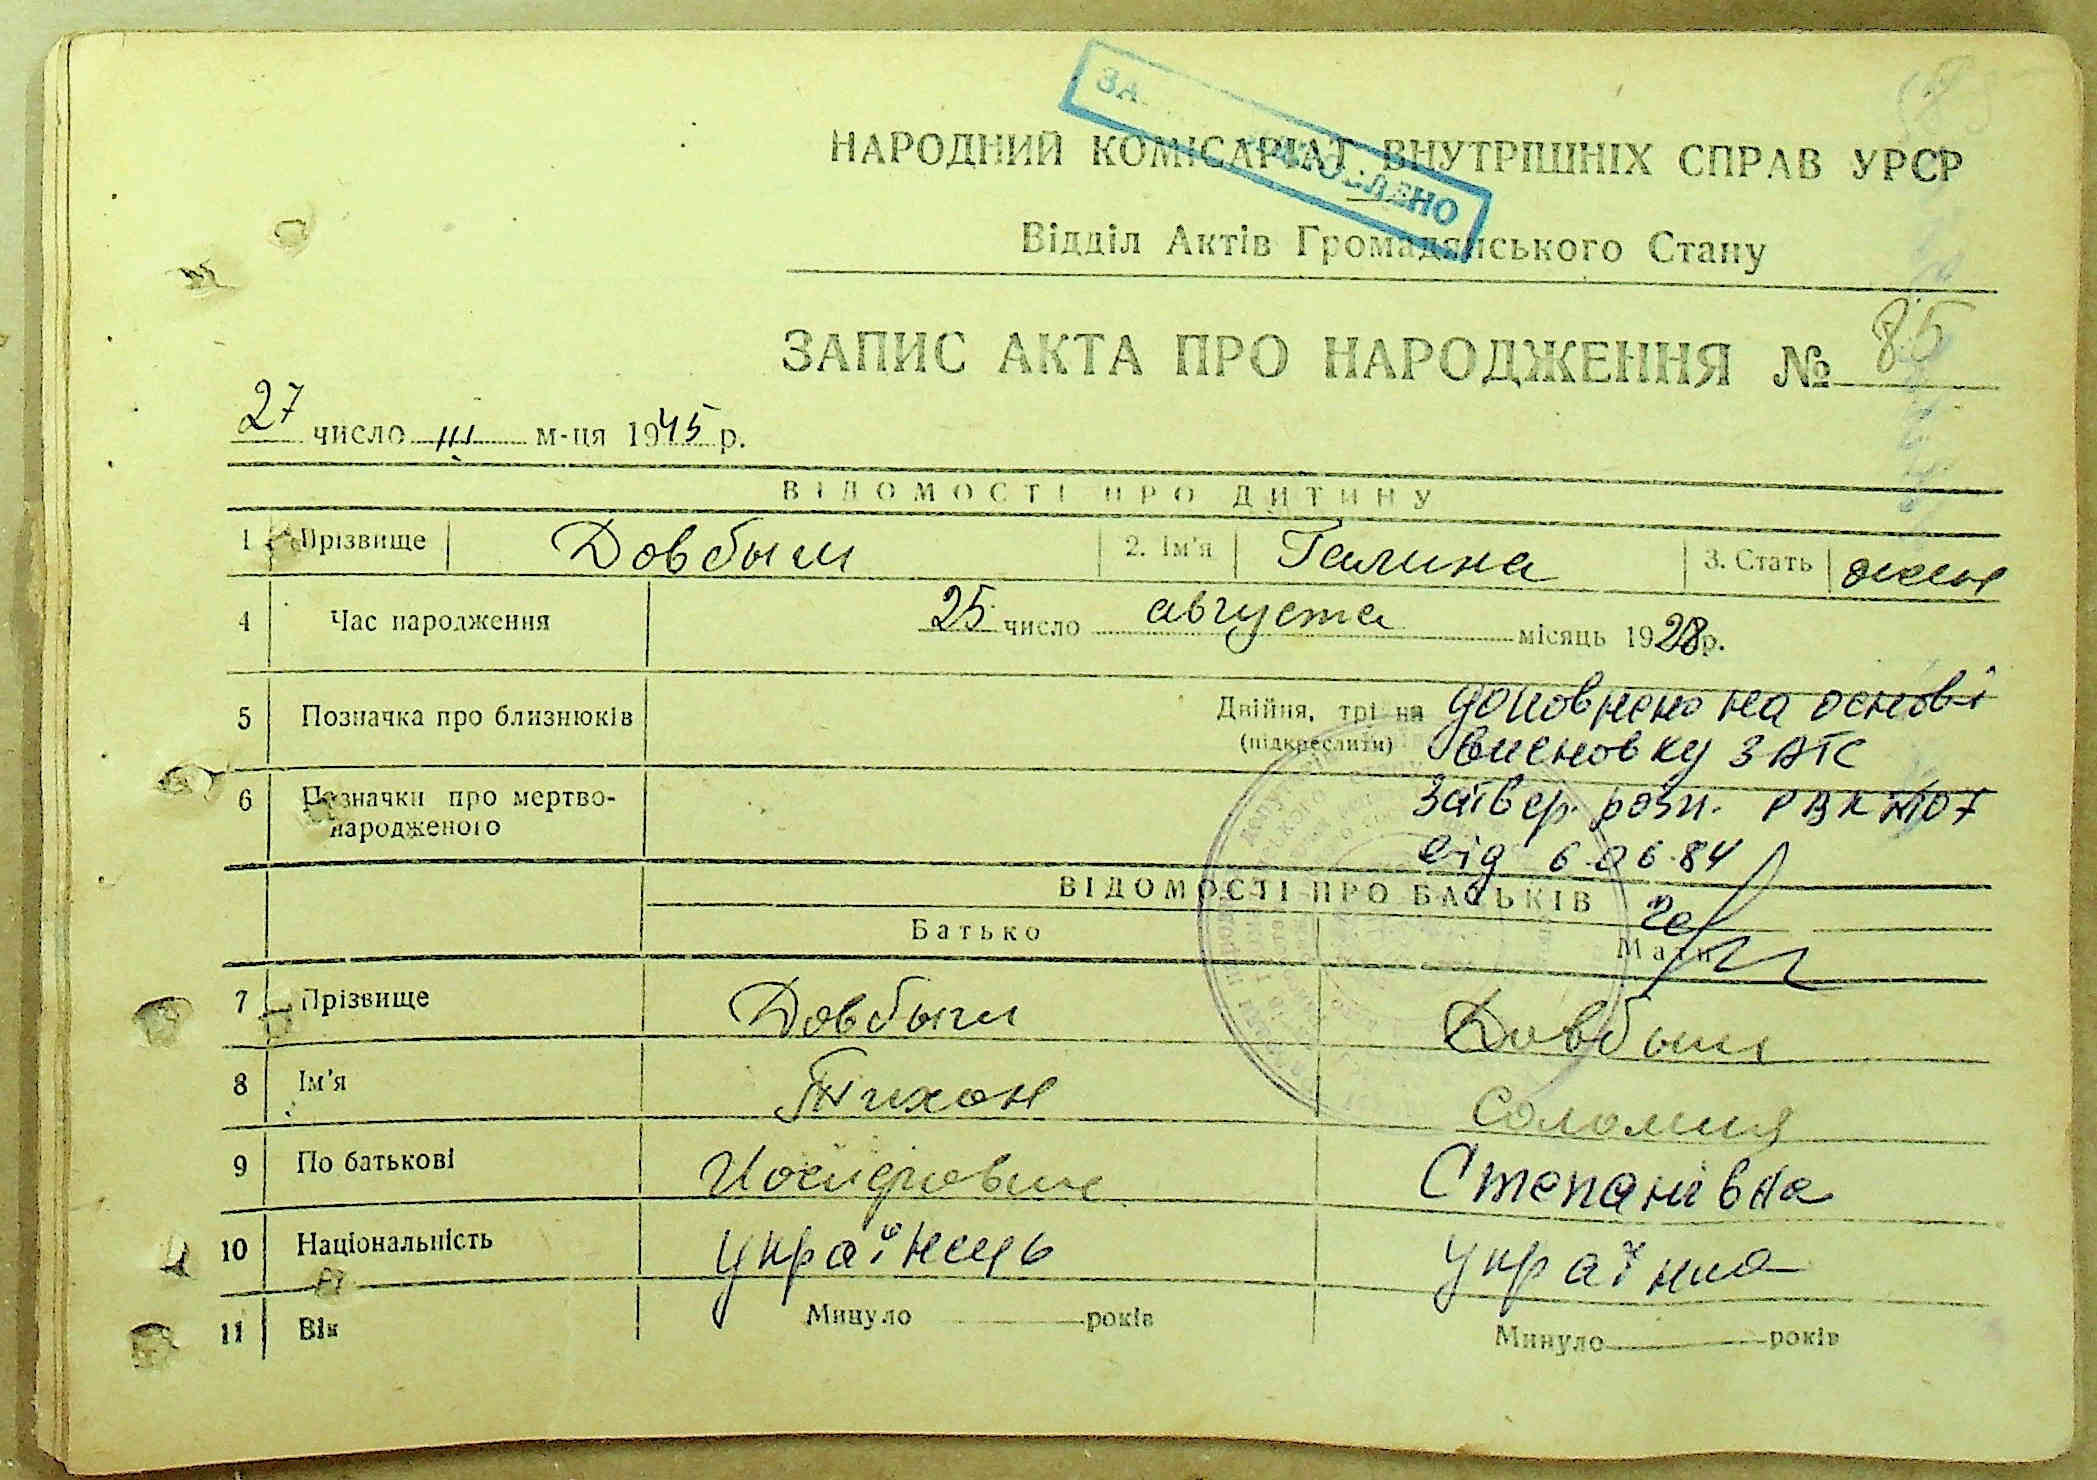 НАРОДНИЙ КОМІСАРІАТ ВНУТРІШНІХ СПРАВ УРСР
Відділ Актів Громадянського Стану
ЗАПИС АКТА ПРО НАРОДЖЕННЯ № 85
27 число III м-ця 1945 р.
ВІДОМОСТІ ПРО ДИТИНУ
1 Прізвище Довбыш 2. Ім'я Галина 3. Стать жен
4 Час народження 25 число августа місяць 1928 р.
5 Позначка про близнюків Двійня, трійня доповнено на основі
(підкреслити) висновку ЗАГС
6 Позначки про мертво- затвер. розп. РВК №107
народженого від 6.06.84
ВІДОМОСТІ ПРО БАТЬКІВ
Батько Мати
7 Прізвище Довбыш Довбыш
8 Ім'я Тихон Соломия
9 По батькові Иосифович Степанівна
10 Національність українець українка
11 Вік Минуло років Минуло років